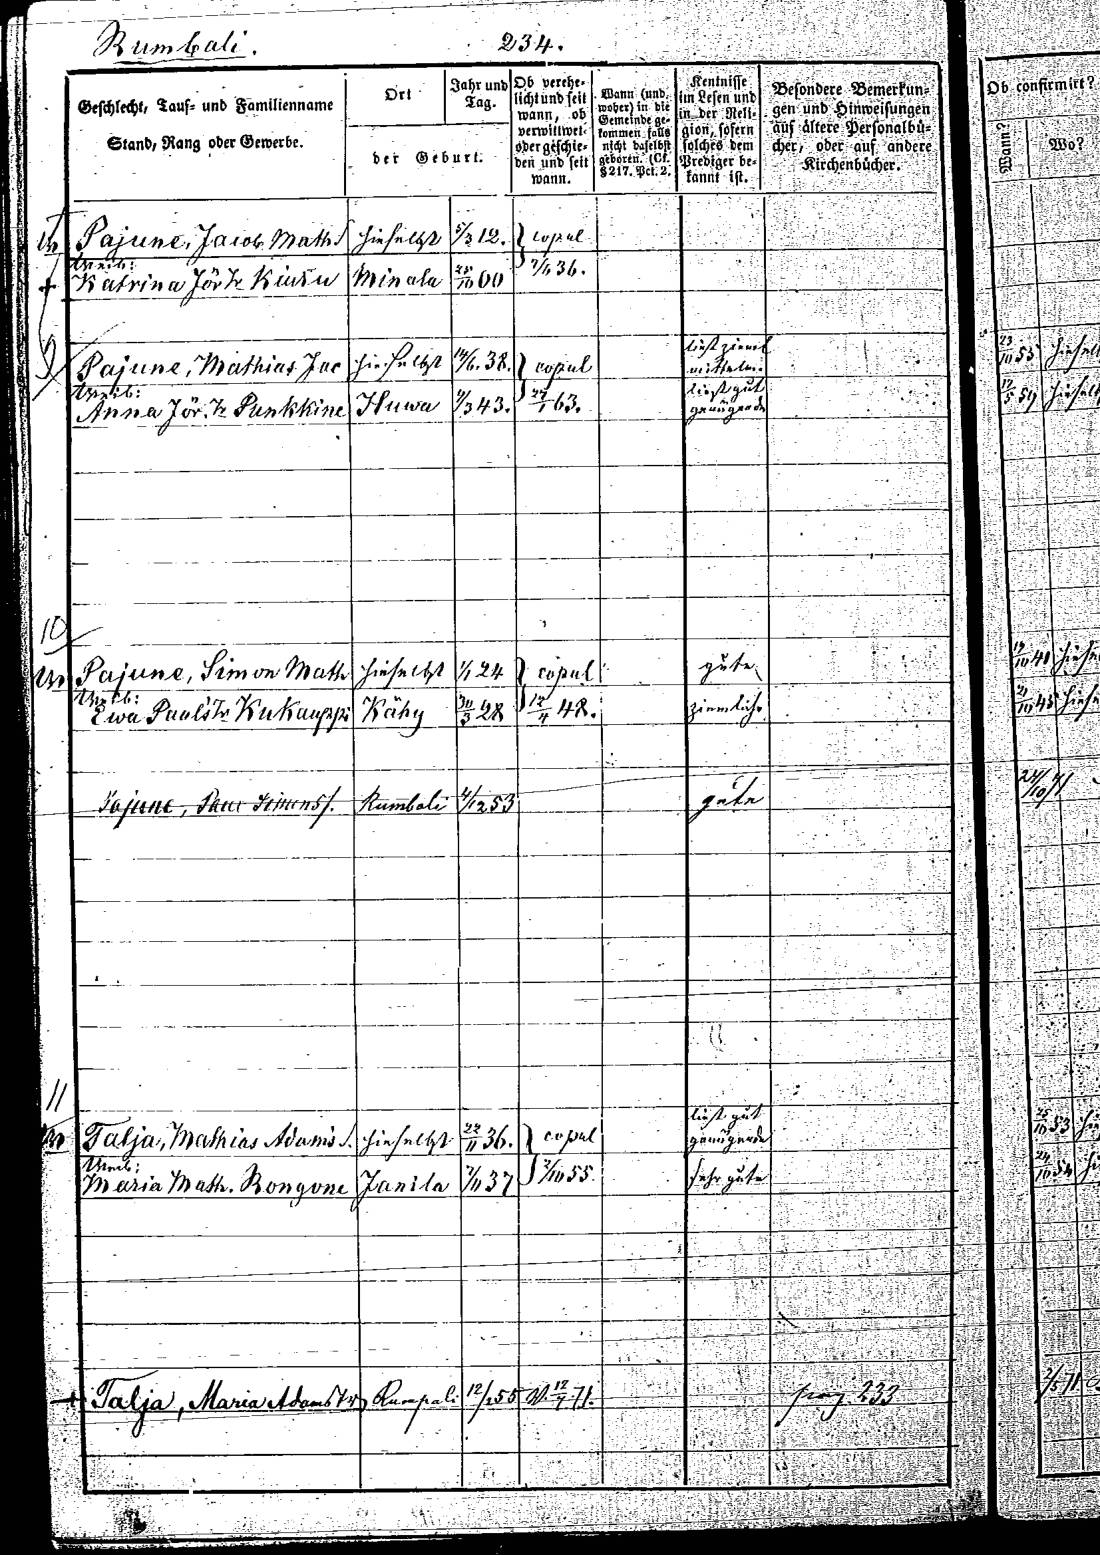 Rumbali. 234.
Geschlecht, Tauf- und Familienname
Stand, Rang oder Gewerbe.
Ort
Jahr und Tag.
der Geburt.
Ob verehe-
licht und seit
wann, ob
verwittwet
oder geschie-
den und seit
wann.
Wann (und
woher) in die
Gemeinde ge-
kommen falls
nicht daselbst
geboren. (Cf.
§ 217. Pct. 2.
Kentnisse
im Lesen und
in der Reli-
gion, sofern
solches dem
Prediger be-
kannt ist.
Besondere Bemerkun-
gen und Hinweisungen
auf ältere Personalbü-
cher, oder auf andere
Kirchenbücher.
Ob confirmirt?
Wann?
Wo?
Pajune, Jacob Math S hieselbst 5/3 12. copul
Weib:
Katrina Jör. Tr Minala 00 36.
9
Pajune, Mathias Jac hieselbst 14/6. 38. copul liest ziemt mittelm. 23/10 55 hieselb
Weib:
Anna Jör. Tr Punkkine Huwa 3 43. 27/1 63. liest gut genügende 59 hieselb
10
Pajune, Simon Math hieselbst 1/1 24 copul gute 19/10 40 hiese
Weib:
Ewa Pauls Tr Kukauppi Kähy 30/3 28 12/4 48. ziemliche 21/10 45 hiese
Pajune, Paul Simons S. Rumbali 4/12 53 gute 24/10 71
11
Talja, Mathias Adams S. hieselbst 22/11 36. copul liest gut genügende 25/10 53 hie
Weib:
Maria Math. Rongone Janila 7/11 37 7/10 55. sehr gute 24/10 54 hi
Talja, Maria Adams Tr Rumpali 12/1 55 12/7 71. pag. 233 2/5 71.